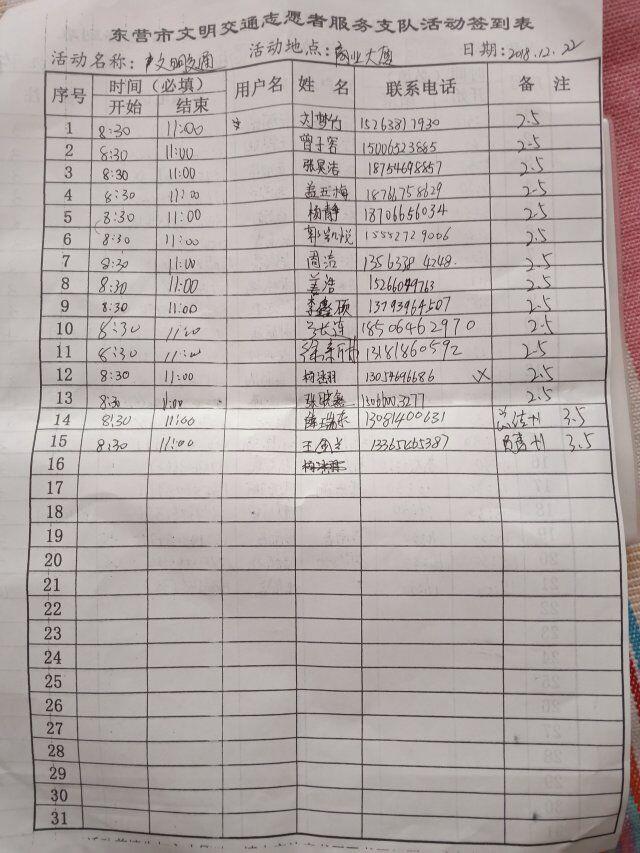 东营市文明交通志愿者服务支队活动签到表
活动名称: 文明交通 活动地点: 商业大厦 日期: 2018.12.22
序号 时间（必填） 用户名 姓 名 联系电话 备 注
开始 结束
1 8:30 11:00 15263817930 2.5
2 8:30 11:00 曾子容 15006523885 2.5
3 8:30 11:00 张昊洁 18754698857 2.5
4 8:30 11:00 盖玉梅 18761758629 2.5
5 8:30 11:00 杨静 18706656034 2.5
6 8:30 11:00 郭凯悦 15552729006 2.5
7 8:30 11:00 周洁 13563384248 2.5
8 8:30 11:00 姜浩 15266049763 2.5
9 8:30 11:00 李鑫硕 13793964507 2.5
10 8:30 11:00 18506462970 2.5
11 8:30 11:00 13181860592 2.5
12 8:30 11:00 13054696686 2.5
13 8:30 11:00 2.5
14 8:30 11:00 13081400631 3.5
15 8:30 11:00 3.5
16
17
18
19
20
21
22
23
24
25
26
27
28
29
30
31